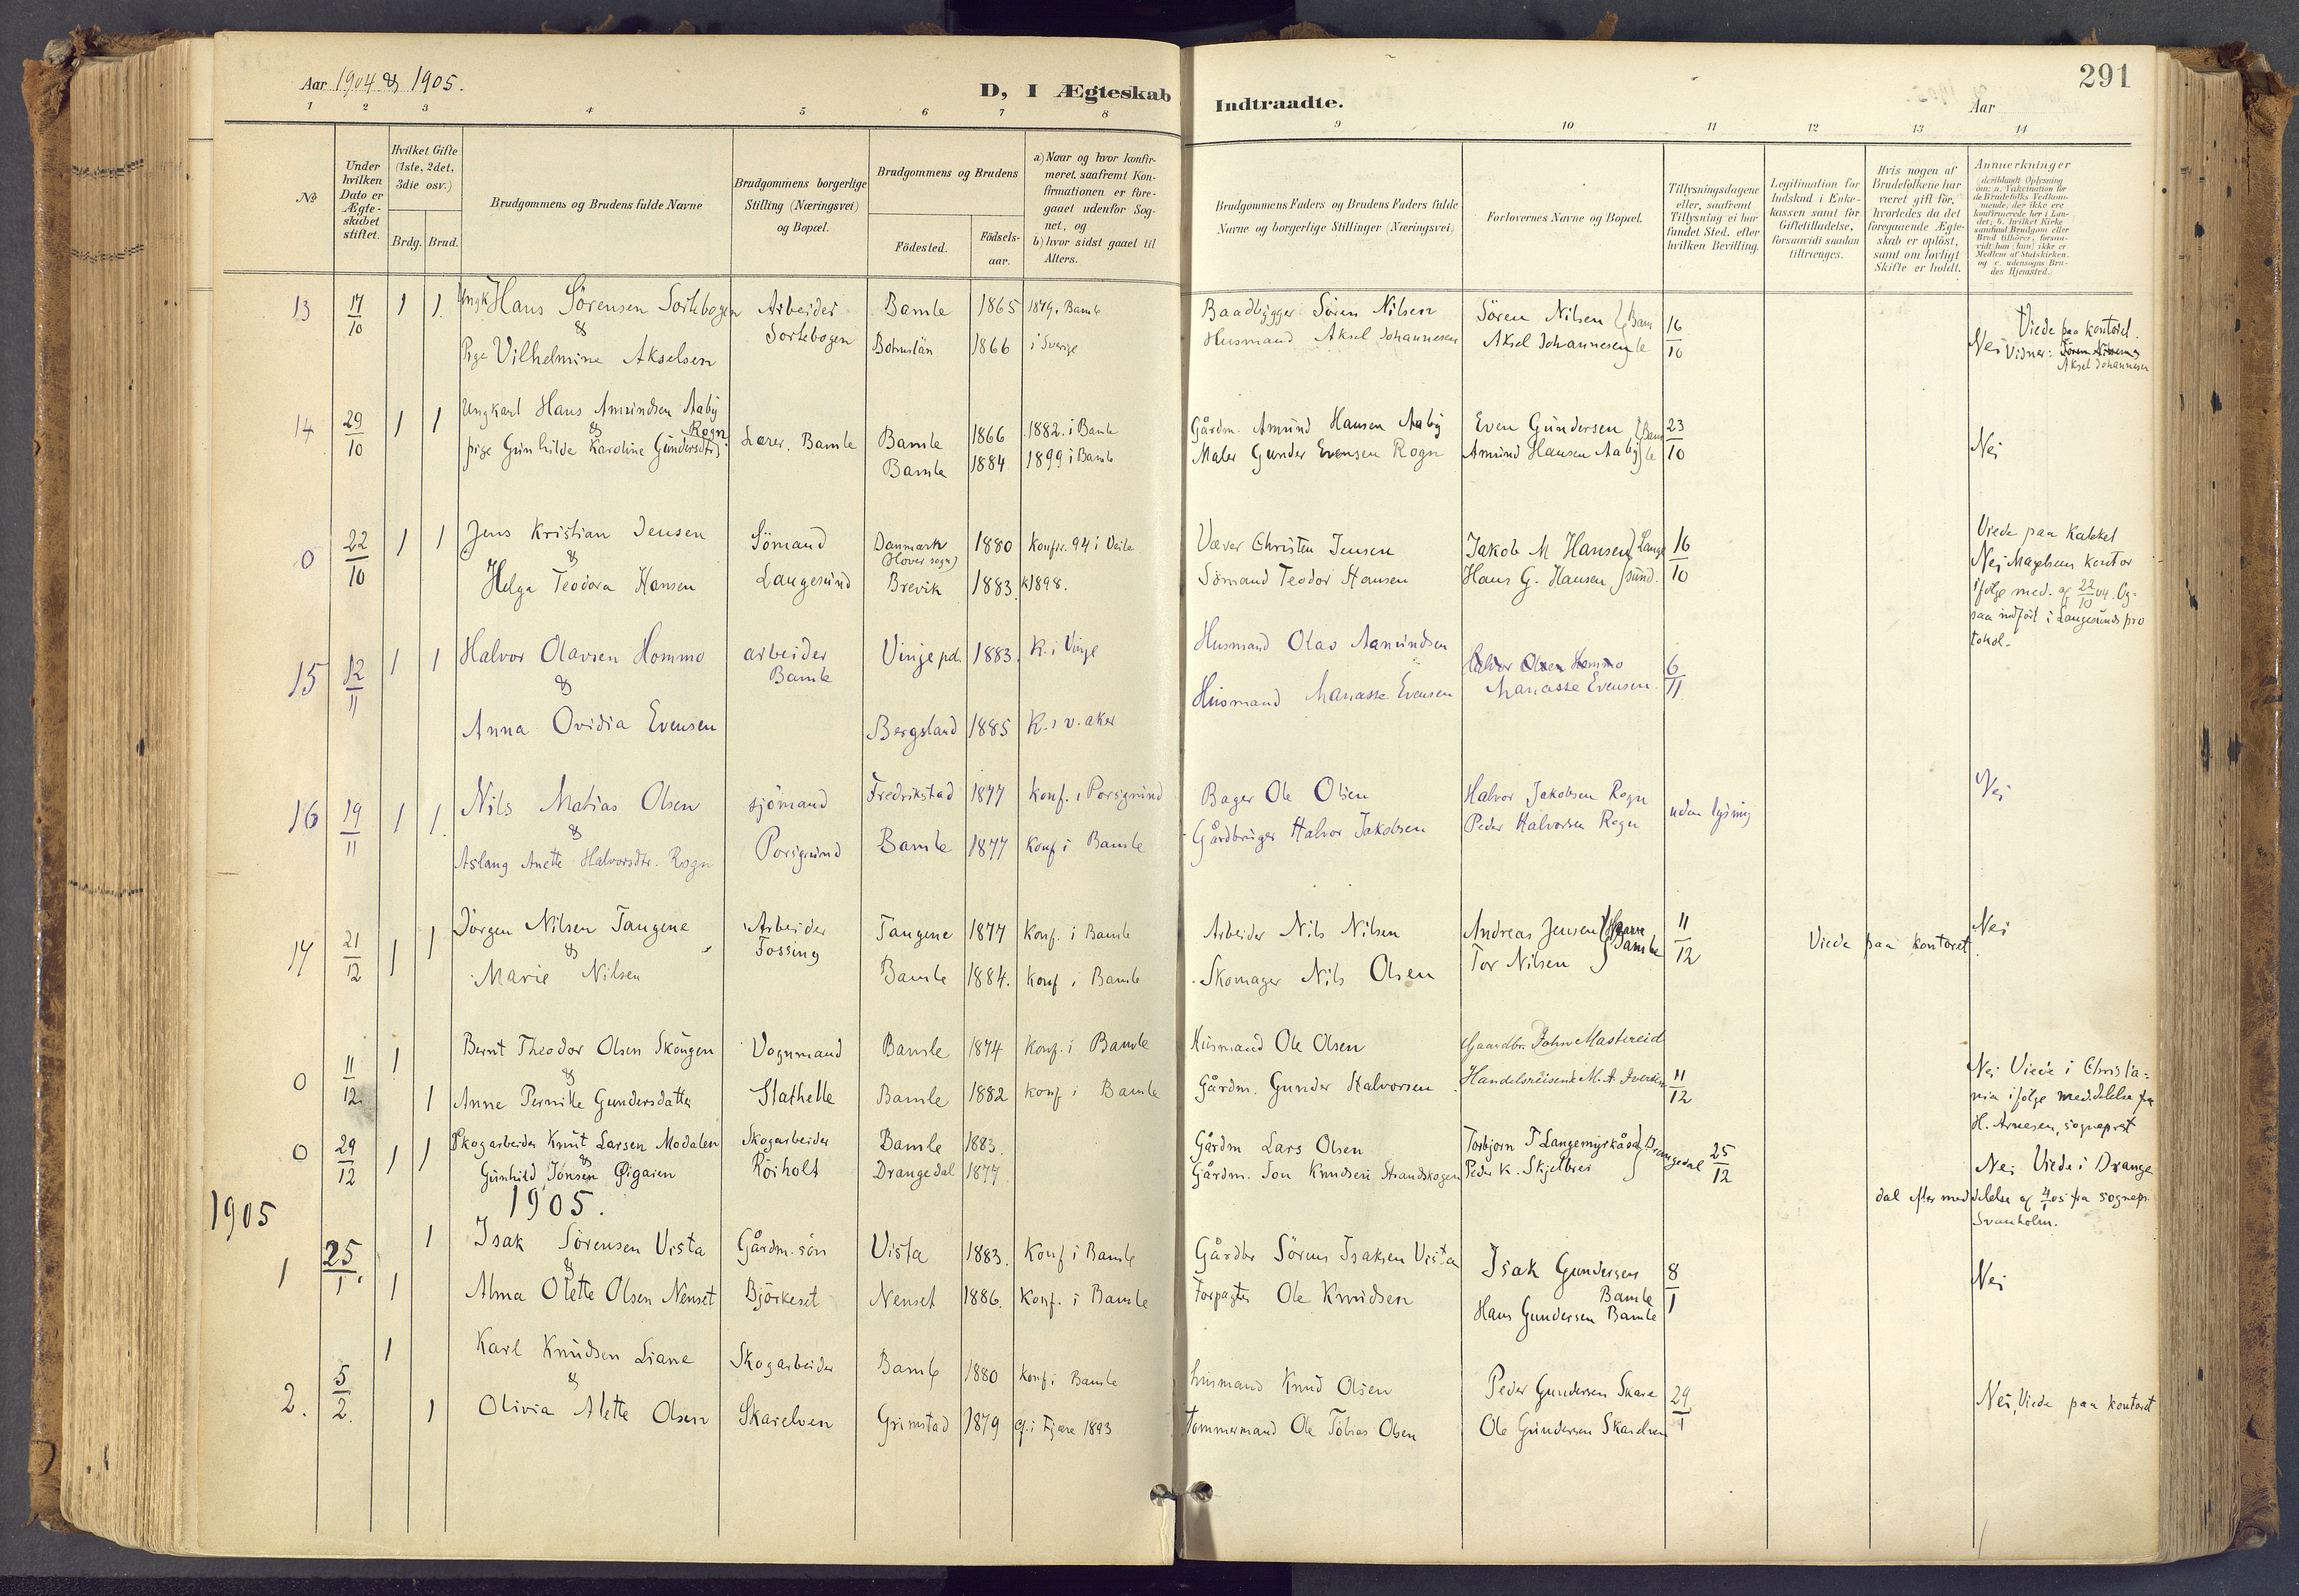 Aar 1904 & 1905.
D, I Ægteskab Indtraadte.
Aar
291
1 2 3 4 5 6 7 8 9 10 11 12 13 14
No
Under hvilken Dato er Ægteskabet stiftet.
Hvilket Gifte (1ste, 2det, 3die osv.)
Brdg. Brud.
Brudgommens og Brudens fulde Navne
Brudgommens borgerlige Stilling (Næringsvei) og Bopæl.
Brudgommens og Brudens
Födested.
Födselsaar.
a) Naar og hvor konfirmeret, saafremt Konfirmationen er foregaaet udenfor Sognet, og
b) hvor sidst gaaet til Alters.
Brudgommens Faders og Brudens Faders fulde Navne og borgerlige Stillinger (Næringsvei)
Forlovernes Navne og Bopæl.
Tillysningsdagene eller, saafremt Tillysning ei har fundet Sted, efter hvilken Bevilling.
Legitimation for Indskud i Enkekassen samt for Giftetilladelse, forsaavidt saadan tiltrænges.
Hvis nogen af Brudefolkene har været gift för, hvorledes da det foregaaende Ægteskab er oplöst, samt om lovligt Skifte er holdt.
Anmerkninger
(deriblandt Oplysning om: a. Vakcination for de Brudefolks Vedkommende, der ikke ere konfirmerede her i Landet; b. hvilket Kirkesamfund Brudgom eller Brud tilhörer, forsaavidt han (hun) ikke er Medlem af Statskirken, og c. udensogns Brudes Hjemsted.)
13 17/10 1 1. Ungk Hans Sörensen Sortebogen Arbeider Bamle 1865 1879. Bamle Baadbygger Sören Nilsen Sören Nilsen } Bam 16/10 Viede paa kontoret.
& Sortebogen
Pige Vilhelmine Akselsen Bohuslän 1866 i Sverige Husmand Aksel Johannesen Aksel Johannesen } le Nei Vidner: Sören Nilsen & Aksel Johannesen
14 29/10 1 1 Ungkarl Hans Amundsen Aaby Lærer. Bamle Bamle 1866 1882. i Bamle Gårdm. Amund Hansen Aaby Even Gundersen } Bam 23/10 Nei
& Rogn
pige Gunhilde Karoline Gundersdtr. Bamle 1884 1899 i Bamle Maler Gunder Evensen Rogn Amund Hansen Aaby } le
0 22/10 1 1 Jens Kristian Jensen Sömand Danmark (Hover sogn) 1880 Konfir. 94 i Veile Væver Christen Jensen Jakob M Hansen } Lange 16/10 Viede paa Kabbel
&
Helga Teodora Hansen Langesund Brevik 1883. k 1898. Sömand Teodor Hansen Hans G. Hansen } sund. Nei Magelsens kontor
ifölge med. af 22/10 04. Og-
saa indfört i Langesunds pro
tokol.
15 12/11 1 1 Halvor Olavsen Hommo arbeider Vinje pd. 1883. K. i Vinje Husmand Olav Aamundsen Halvor Olsen Hommo 6/11
& Bamle
Anna Ovidia Evensen Bergsland 1885 K. i V. aker Husmand Manasse Evensen Manasse Evensen.
16 19/11 1 1. Nils Matias Olsen sjömand Fredrikstad 1877 Konf. i Porsgrund Bager Ole Olsen Halvor Jakobsen Rogn uden lysning Nei
&
Aslaug Anette Halvorsdtr. Rogn Porsgrund Bamle 1877 Konf i Bamle Gårdbruger Halvor Jakobsen Peder Halvorsen Rogn
17 21/12 1 1 Jörgen Nilsen Tangene Arbeider Tangene 1877 Konf. i Bamle Arbeider Nils Nilsen Andreas Jensen } Bamle 11/12 Viede paa kontoret. Nei
& Fossing
Marie Nilsen Bamle 1884. Konf i Bamle Skomager Nils Olsen Tor Nilsen
0 11/12. 1 Bernt Theodor Olsen Skougen Vognmand Bamle 1874 Konf. i Bamle Husmand Ole Olsen Gaardbr. John Mastereid 11/12
&
1 Anne Pernille Gundersdatter Stathelle Bamle 1882 Konf i Bamle Gårdm. Gunder Halvorsen Handelsreisende M. A. Iversen Nei Viede i Christia=
nia ifölge meddelelse fra
H. Arnesen, sogneprest
0 29/12 1 1 Skogarbeider Knut Larsen Modalen Skogarbeider Bamle 1883. Gårdm Lars Olsen Torbjorn T Langemyrkåsa } Drangedal 25/12
&
Gunhild Jonsen Øigarden Röiholt Drangedal 1877 Gårdm. Jon Knudsen Strandskogen Peder K. Skjelbrei Nei Viede i Drange
dal efter meddelelse af 4/1 05 fra sognepr.
Svanholm.
1905 1905.
1 25/1. 1 Isak Sörensen Vista Gårdm. sön Vista 1883. Konf i Bamle Gårdbr Sörens Isaksen Vista Isak Gundersen 8/1 Nei
& Bamle
1 Alma Olette Olsen Nenset Björkeset Nenset 1886. Konf. i Bamle Forpagter Ole Knudsen Hans Gundersen Bamle
2. 5/2. 1 Karl Knudsen Liane Skogarbeider Bamle 1880 Konf i Bamle husmand Knud Olsen Peder Gundersen Skare 29/1 Nei, Viede paa kontoret
&
1 Olivia Alette Olsen Skarelven Grimstad 1879 cf. i Fjære 1893 Tommermand Ole Tobias Olsen Ole Gundersen Skarelven